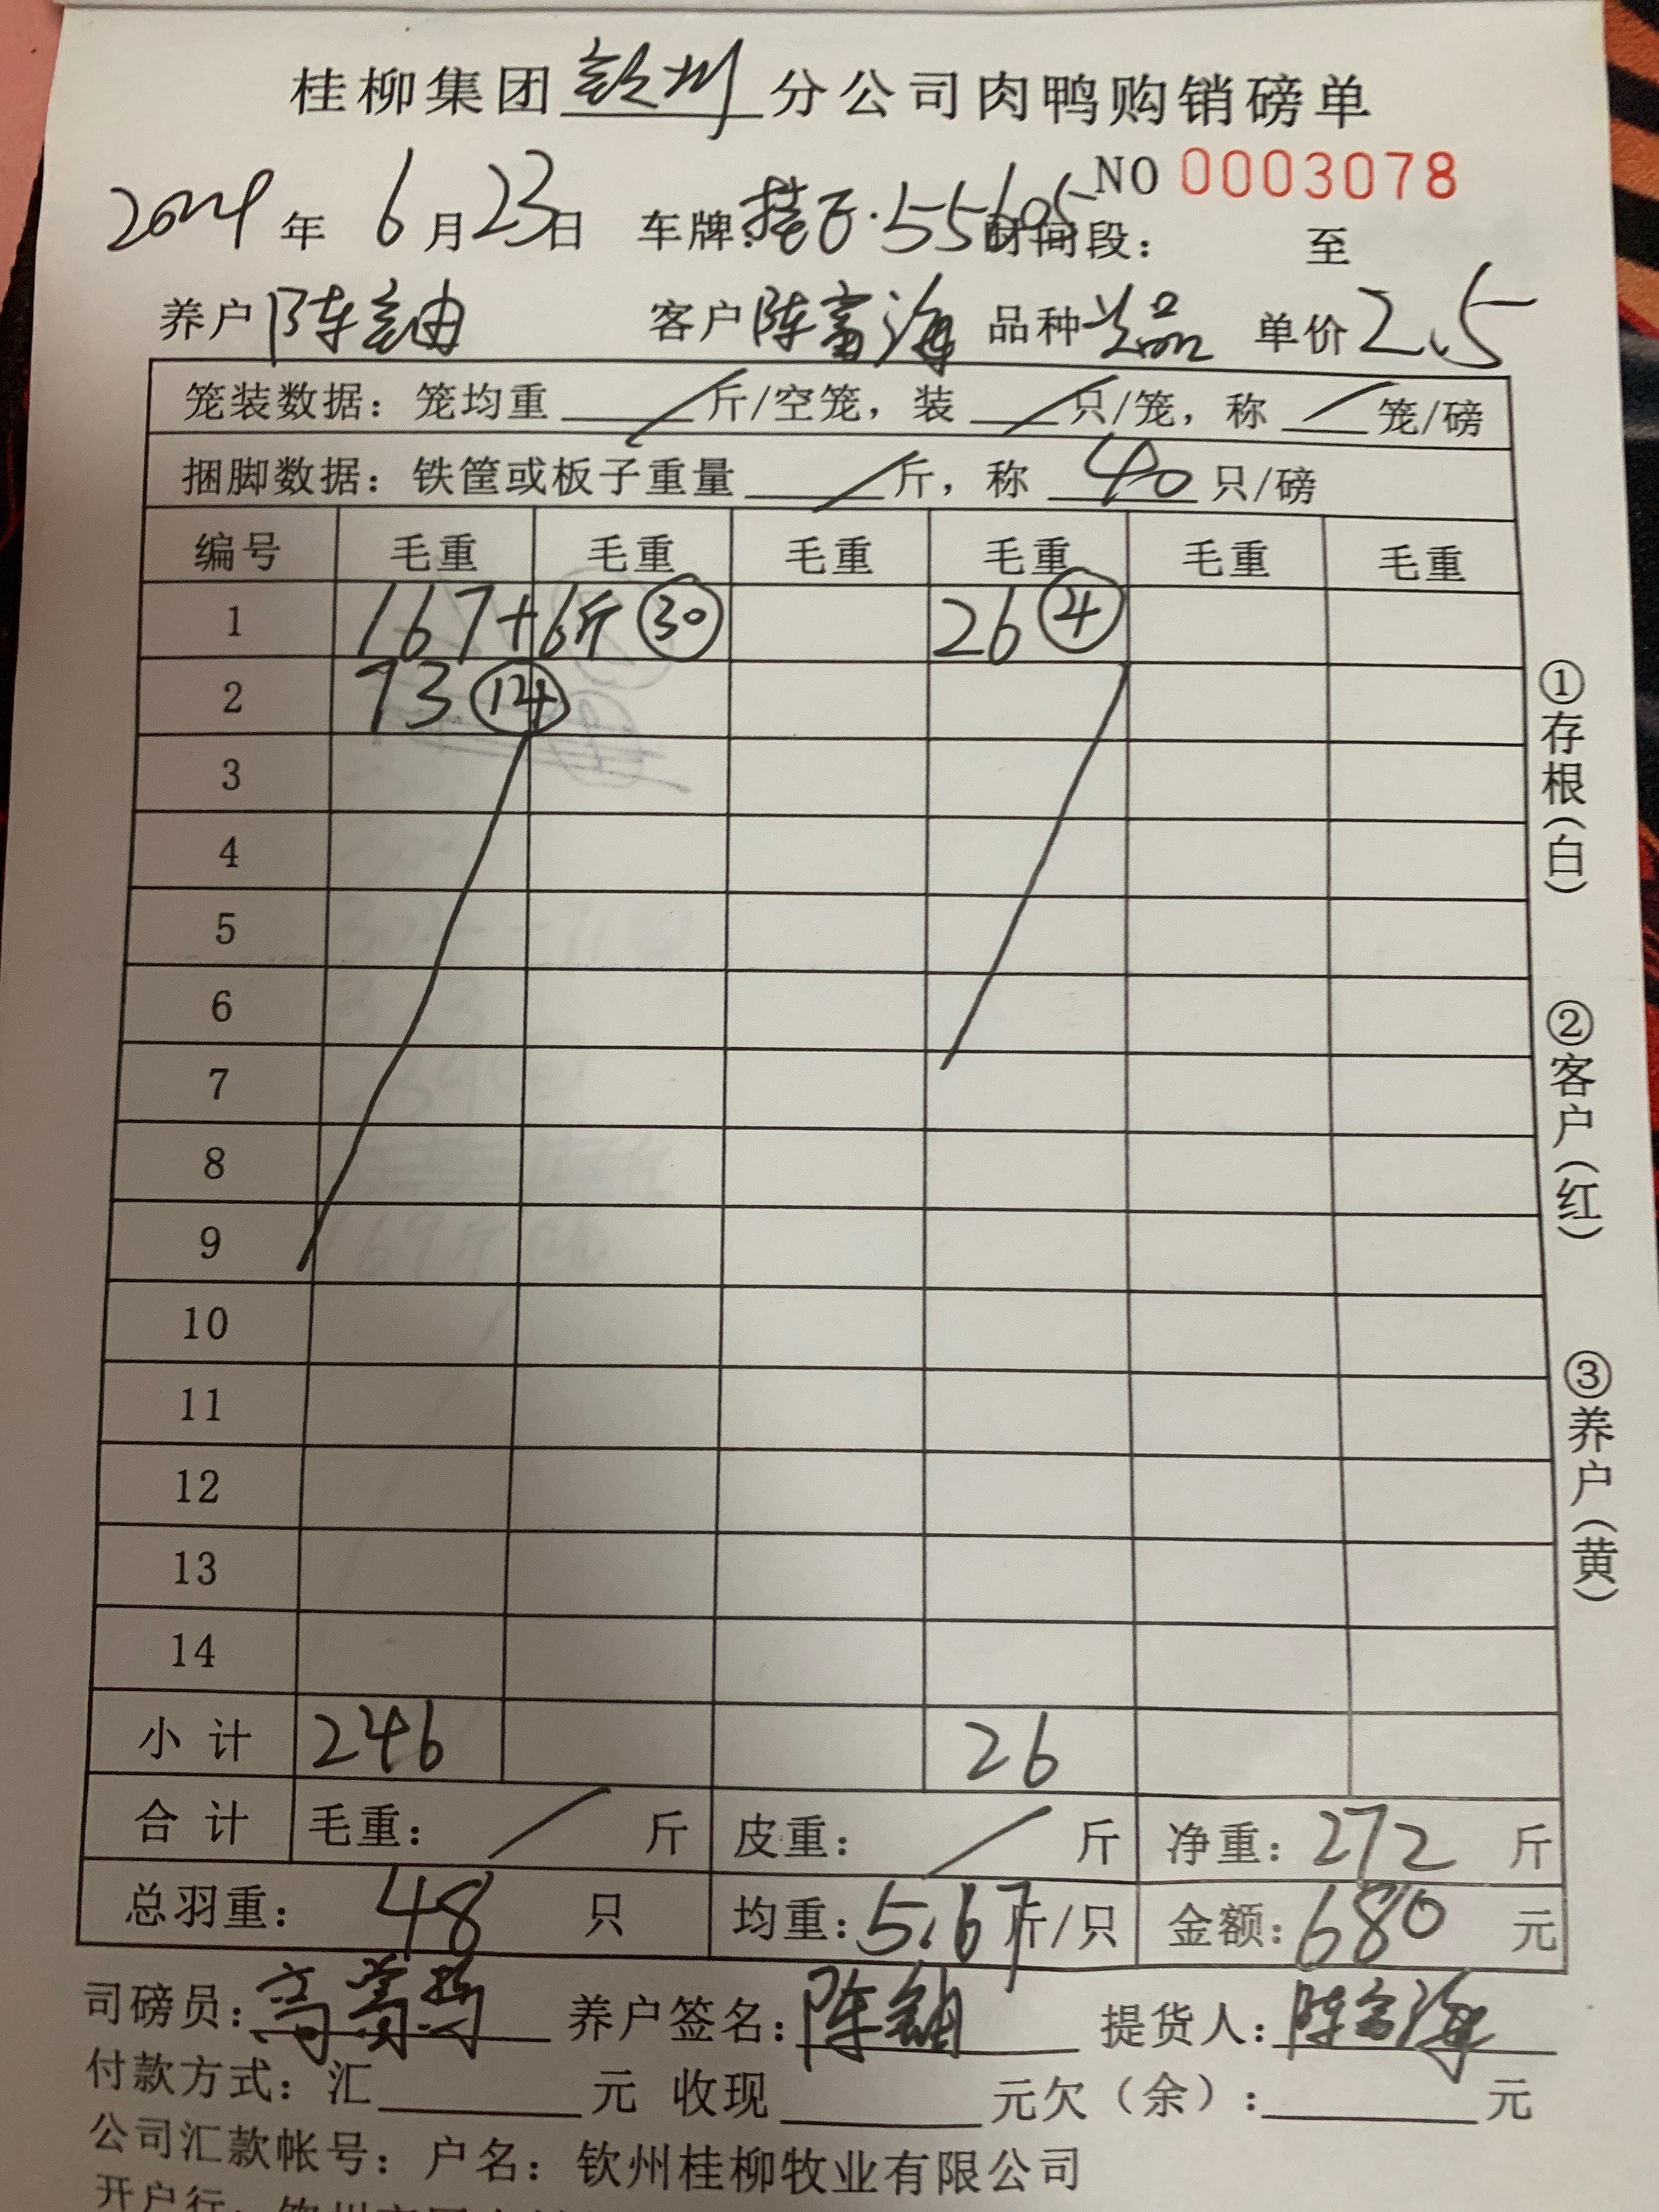 桂柳集团钦州分公司肉鸭购销磅单
NO 0003078
2024年 6月23日 车牌: 55605 时间段: 至
养户陈 客户陈富海 品种 品 单价2.5
笼装数据:笼均重 / 斤/空笼,装 / 只/笼,称 / 笼/磅
捆脚数据:铁筐或板子重量 / 斤,称 40 只/磅
编号 毛重 毛重 毛重 毛重 毛重 毛重
1 167+6斤 ㉚ 26 ④
2 73 ⑭
3
4
5
6
7
8
9
10
11
12
13
14
小计 246 26
合计 毛重: / 斤 皮重: / 斤 净重:272 斤
总羽重: 48 只 均重:5.67斤/只 金额:680 元
司磅员:高 养户签名:陈 提货人:陈富海
付款方式:汇 元 收现 元欠(余): 元
公司汇款帐号:户名:钦州桂柳牧业有限公司
开户行:钦州
①存根(白)
②客户(红)
③养户(黄)